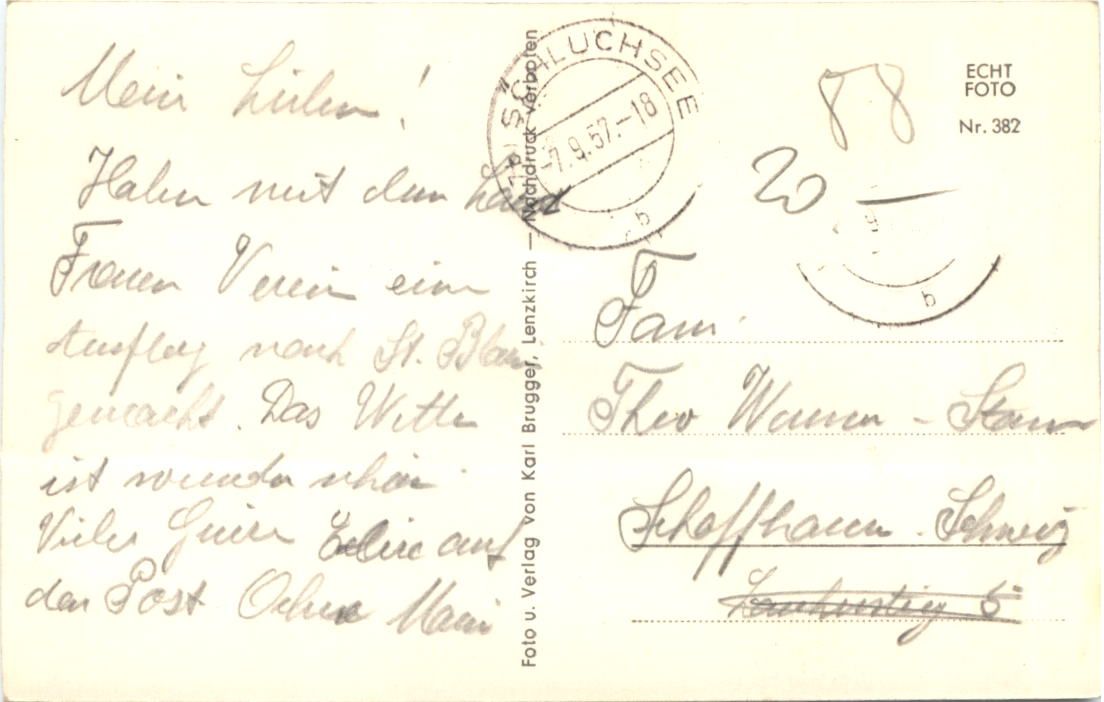 Mein Lieben!
Haben mit dem Land
Frauen Verein eine
Ausflug nach St. Blas
gemacht. Das Wetter
ist wunder schön.
Viele Grüse auf
der Post
SCHLUCHSEE
-7.9.57.-18
b
b
88
20
ECHT
FOTO
Nr. 382
Foto u. Verlag von Karl Brugger, Lenzkirch — Nachdruck verboten
Fam.
Theo Wanner - Stamm
Schaffhausen - Schweiz
5